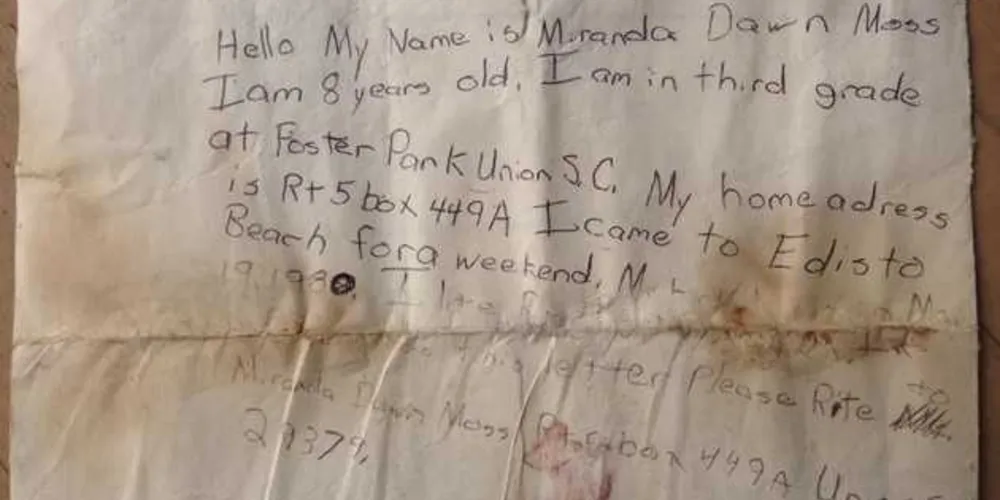 Hello My Name is Miranda Dawn Moss
I am 8 years old. I am in third grade
at Foster Park Union S.C. My home adress
is Rt 5 box 449A I came to Edisto
Beach for a weekend. My
19, 198 I
letter Please Rite to
Miranda Dawn Moss Rt 5 box 449A Un
29379,